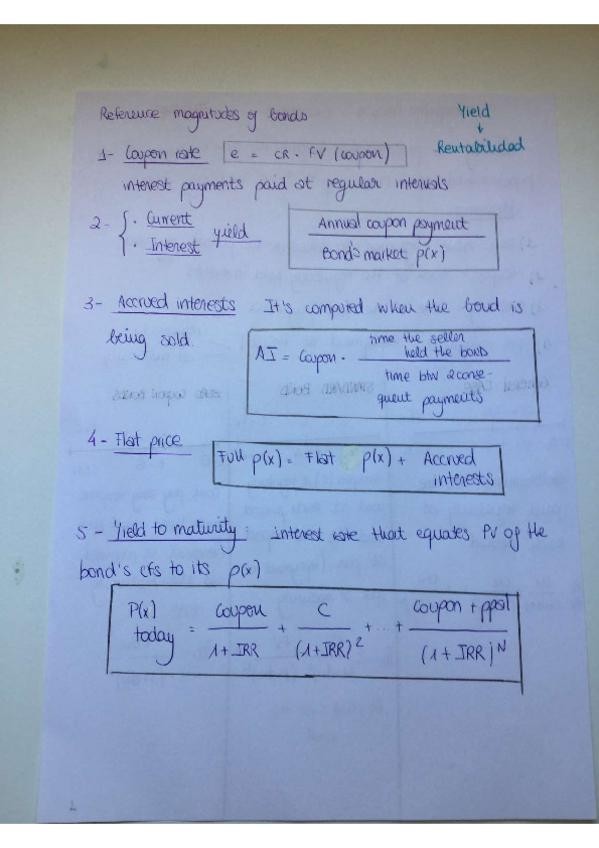 Reference magnitudes of bonds
Yield
↓
Rentabilidad
1- Coupon rate | e = CR · FV (coupon)
interest payments paid at regular intervals
2- { · Current
· Interest yield
Annual coupon payment
Bond's market p(x)
3- Accrued interests It's computed when the bond is
being sold.
AI = Coupon · time the seller
held the bond
time btw 2 conse-
quent payments
4- Flat price
Full p(x) = Flat p(x) + Accrued
interests
5- Yield to maturity: interest rate that equates PV of the
bond's cfs to its p(x)
P(x)
today = Coupon / 1+IRR + C / (1+IRR)² + ... + Coupon + ppal / (1+IRR)^N